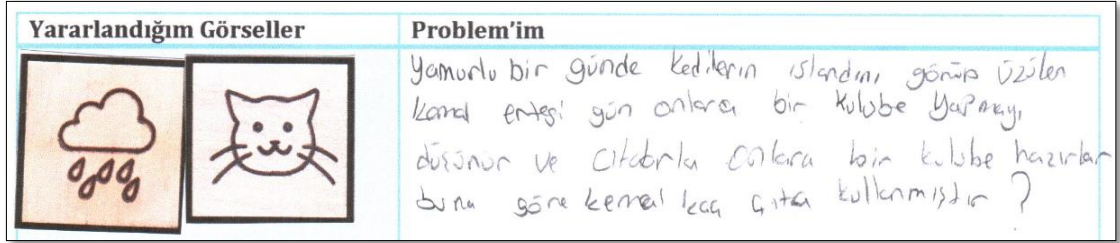 Yararlandığım Görseller
Problem'im
Yamurlu bir günde kedilerin ıslandını görüp üzülen
kemal ertesi gün onlara bir kulube yapmayı
düşünür ve çıtalarla onlara bir kulube hazırlar
buna göre kemal kaç çıta kullanmıştır ?